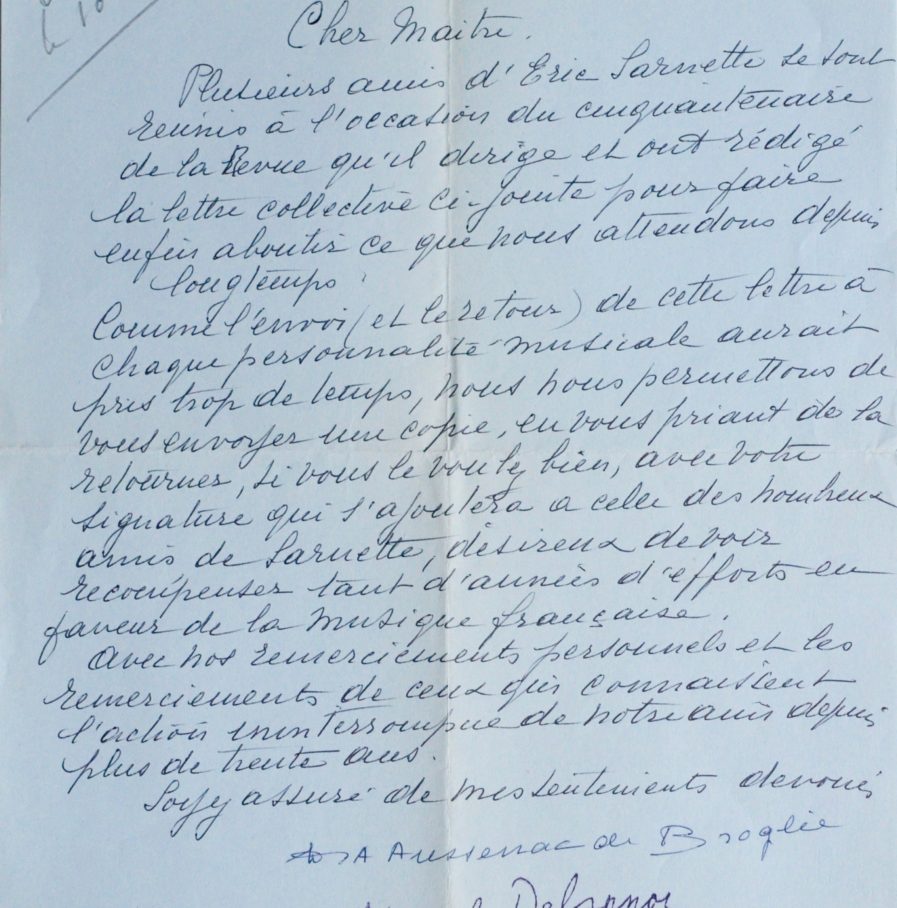 Cher Maitre.
Plusieurs amis d'Eric Sarnette se sont
reunis à l'occasion du cinquantenaire
de la Revue qu'il dirige et ont rédigé
la lettre collective ci-jointe pour faire
enfin aboutir ce que nous attendons depuis
longtemps.
Comme l'envoi (et le retour) de cette lettre à
chaque personnalité musicale aurait
pris trop de temps, nous nous permettons de
vous envoyer une copie, en vous priant de la
retourner, si vous le voulez bien, avec votre
signature qui s'ajoutera a celle des nombreux
amis de Sarnette, désireux de voir
recompenser tant d'années d'efforts en
faveur de la musique française.
Avec nos remerciements personnels et les
remerciements de ceux qui connaissent
l'action ininterrompue de notre ami depuis
plus de trente ans.
Soyez assuré de mes sentiments dévoués
Aussenac de Broglie